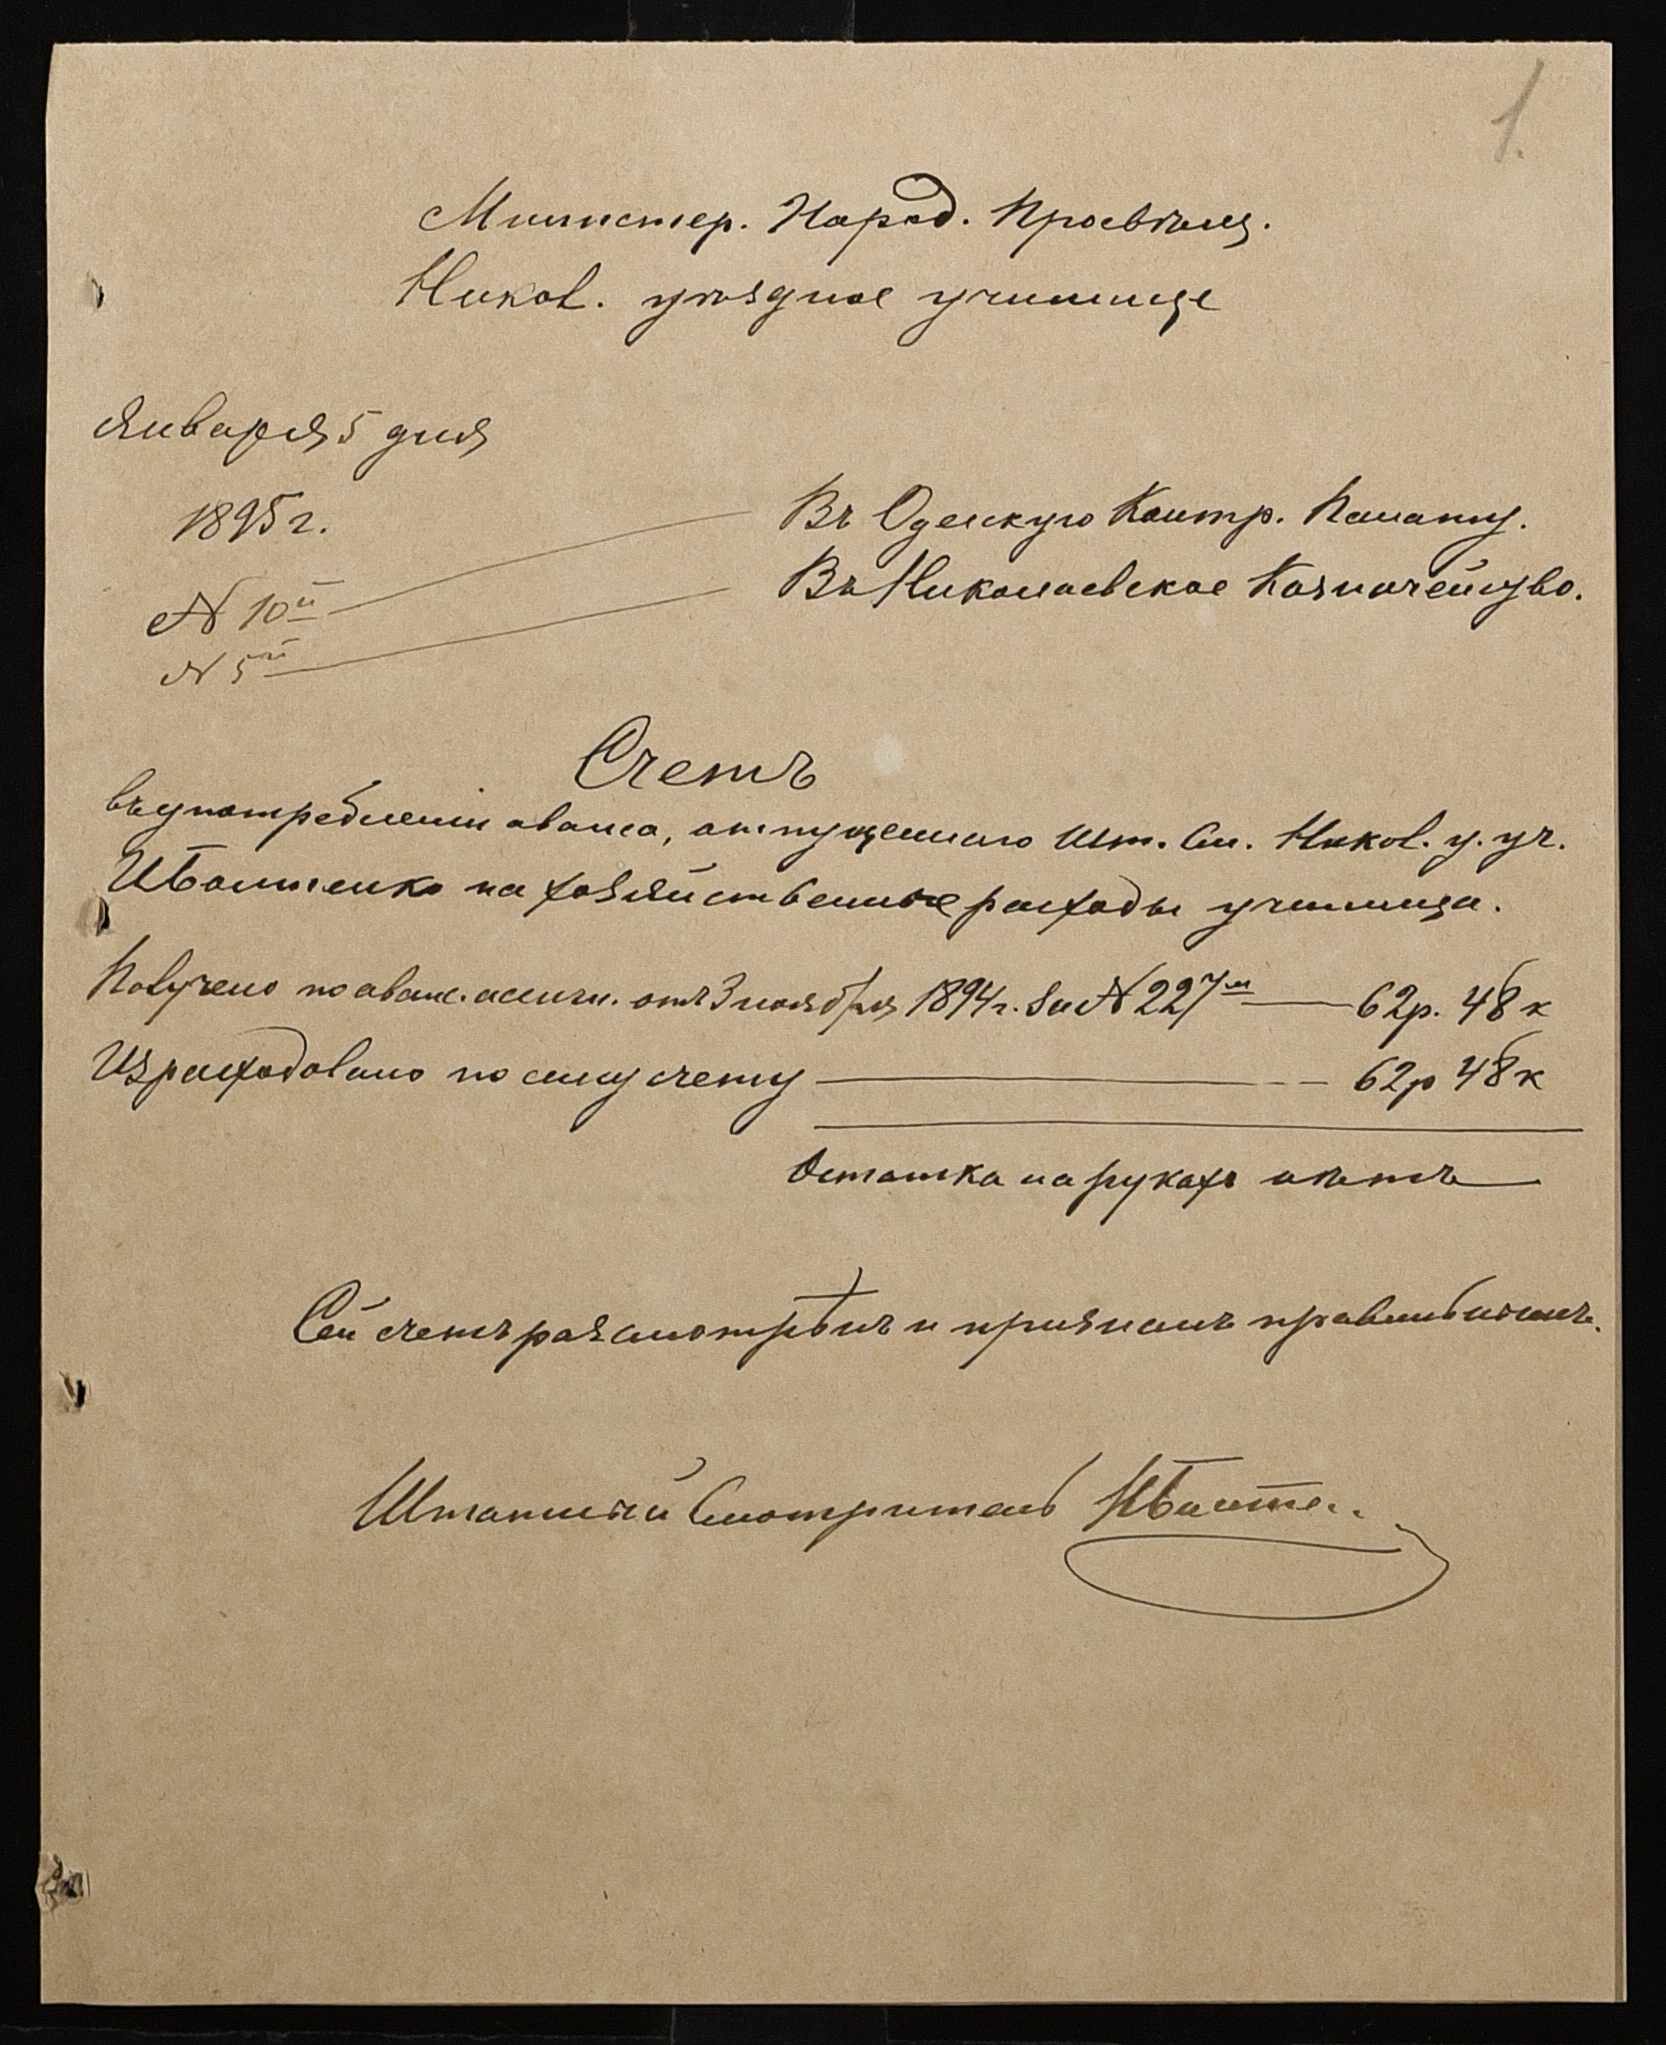 1.
Министер. Народ. Просвѣщ.
Никол. уѣздное училище
Января 5 дня
1895 г.
Въ Одесскую Контр. Палату.
Въ Николаевское Казначейство.
N 10й
N 5й
Счетъ
въ употребленіи аванса, отпущеннаго Шт. См. Никол. у. уч.
на хозяйственные расходы училища.
Получено по аванс. ассигн. отъ 3 ноября 1894 г. за N 227м — 62 р. 48 к
Израсходовано по сему счету — 62 р 48 к
Остатка на рукахъ нѣтъ
Сей счетъ разсмотрѣлъ и призналъ правильнымъ.
Штатный Смотритель